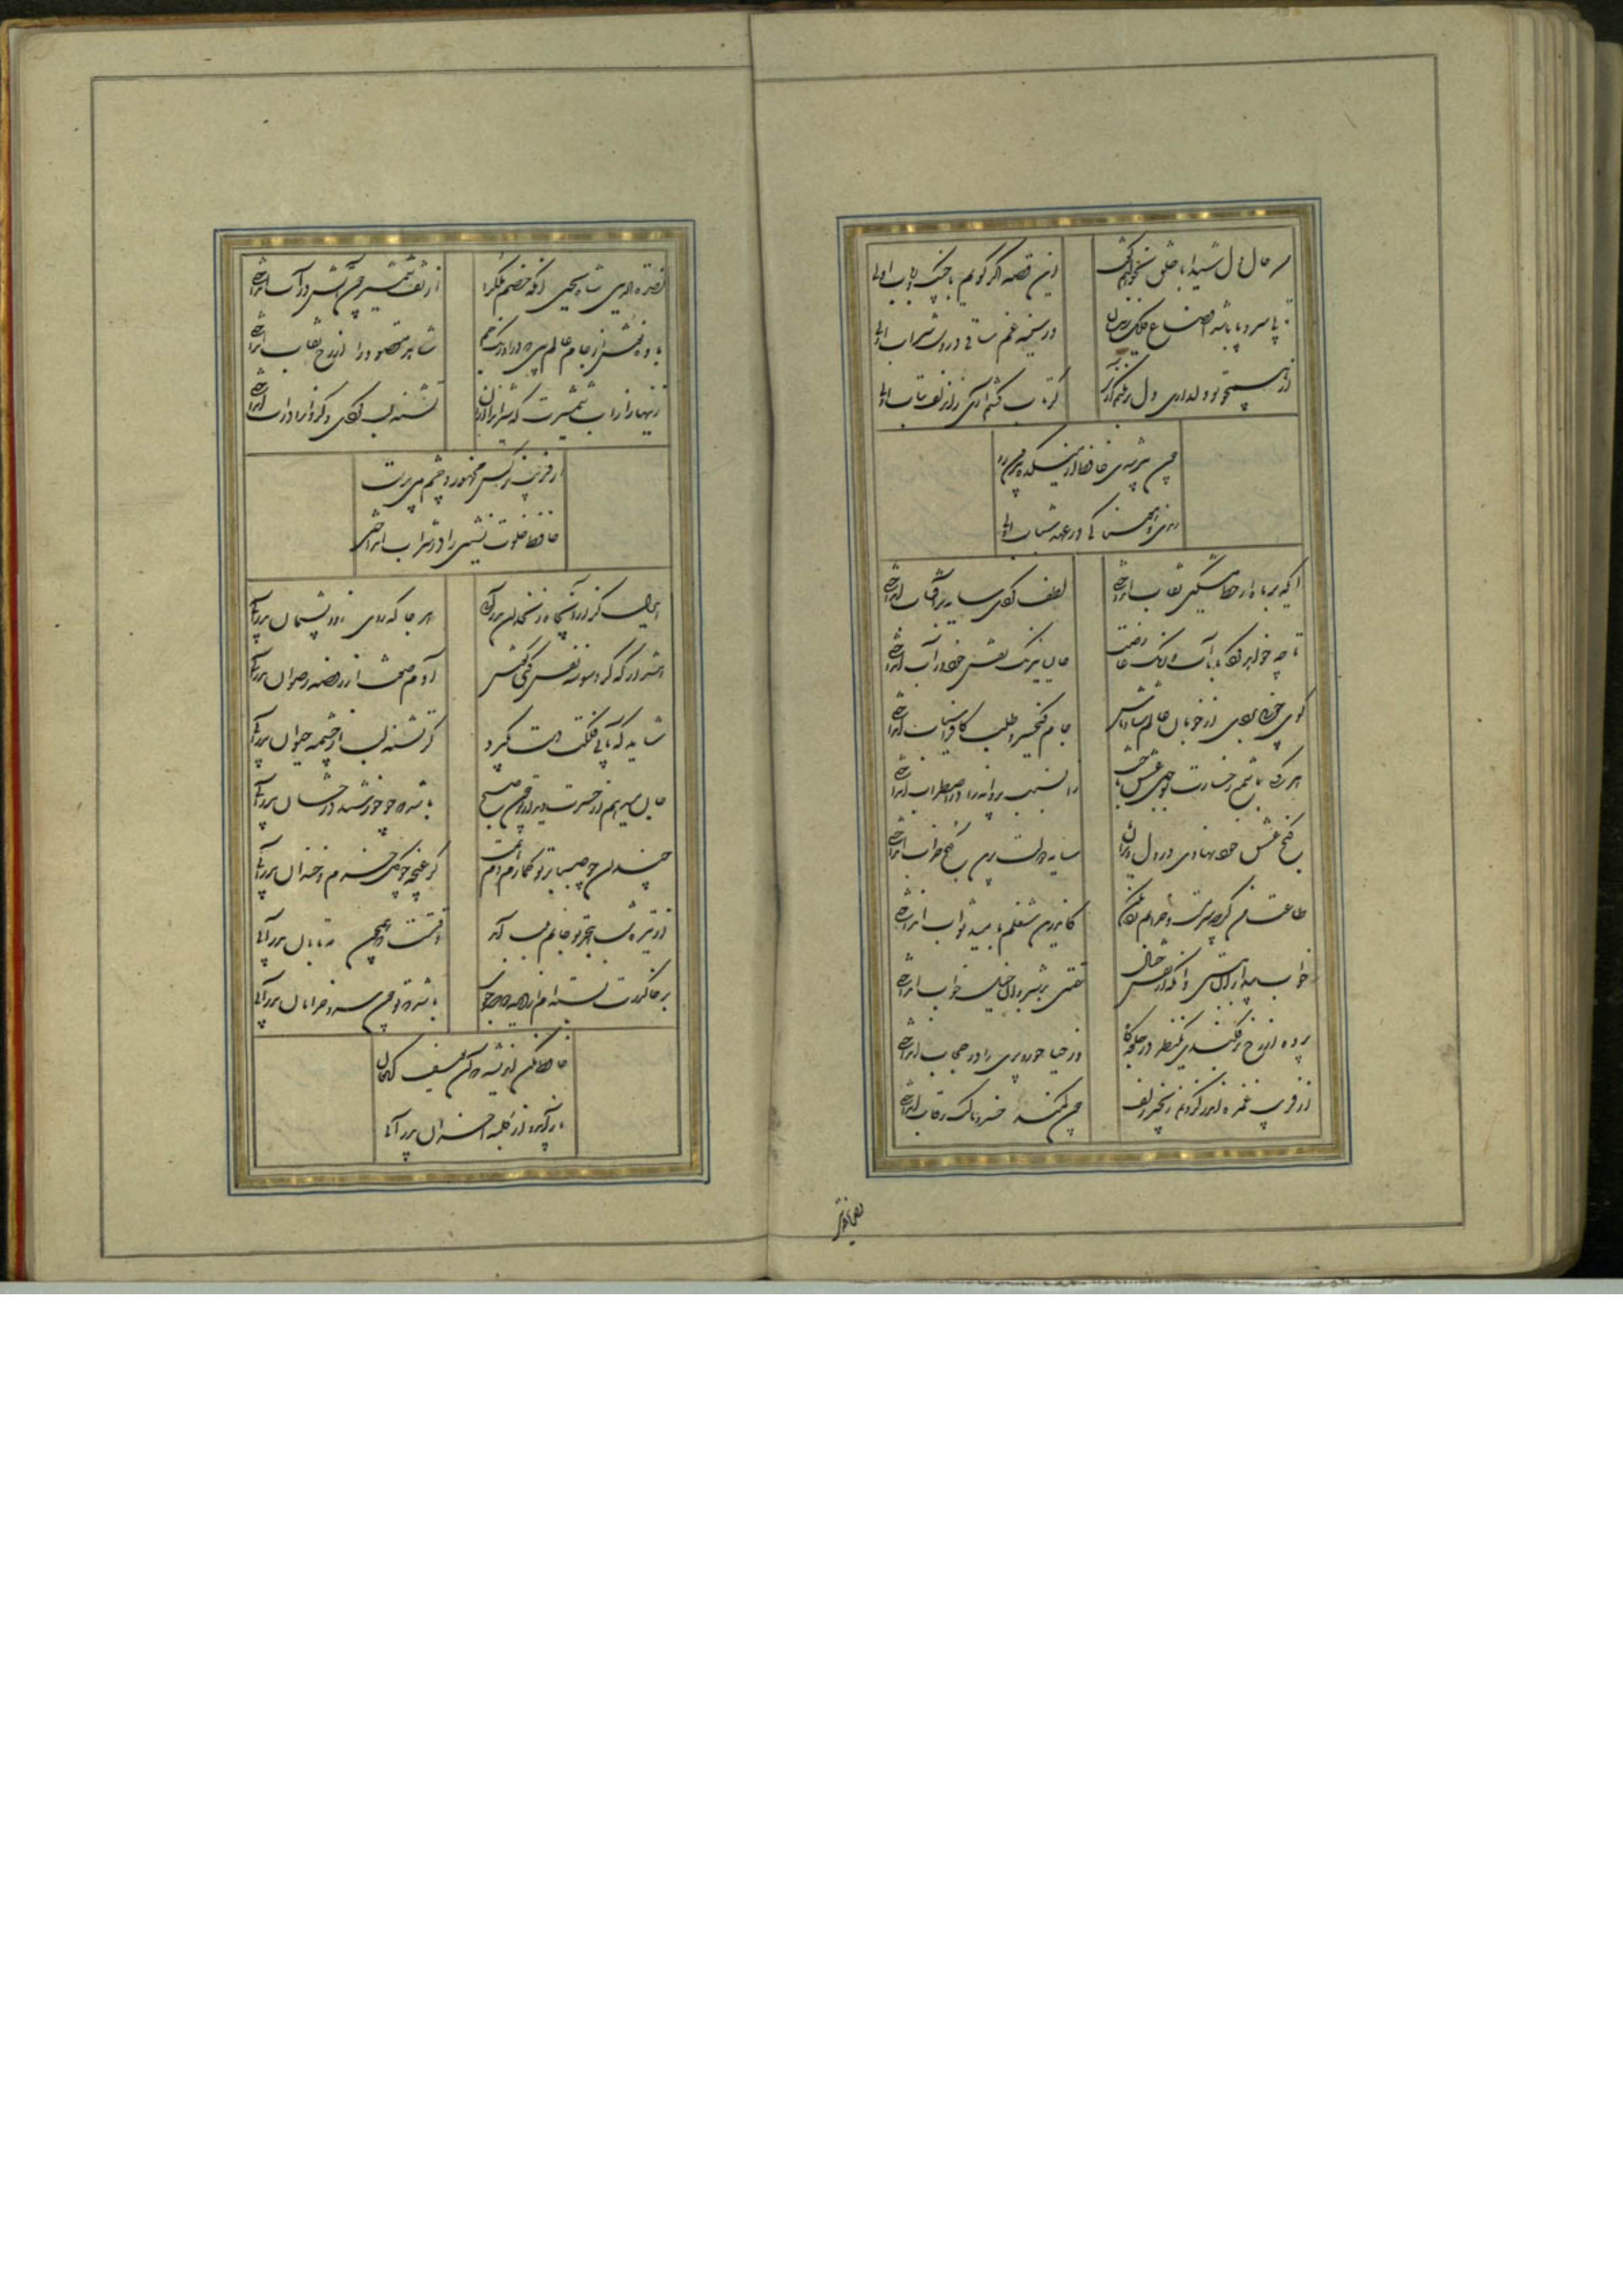 من حال دل شیدا با خلق نخواهم گفت وین قصه اگر گویم با چنگ و رباب اولی
تا بی سر و پا باشد اوضاع فلک زینسان در سینه غم ساقی در دست شراب اولی
از همچو تو دلداری دل بر نکنم آری گر تاب کشم آری زان زلف بتاب اولی
چون پیر شدی حافظ از میکده بیرون رو
رندی و هوسناکی در عهد شباب اولی
ایکه بر ماه از خط مشکین نقاب انداختی لطف کردی سایه بر آفتاب انداختی
تا چه خواهد کرد با ما آب و رنگ عارضت حالیا نیرنگ نقش خود در آب انداختی
گوی خوبی بردی از خوبان عالم شاد باش جام کیخسرو طلب کافراسیاب انداختی
هر کسی با شمع رخسارت بوجهی عشق باخت زان پروانه را در اضطراب انداختی
گنج عشق خود نهادی در دل ویران سایه دولت برین گنج خراب انداختی
طاعت من گرچه خرابم رد مکن کاندرین شغلم بامید ثواب انداختی
خواب بیداران ببستی وانگه از نقش خیال تهمتی بر شبروان خیل خواب انداختی
پرده از رخ برفکندی یک نظر در جلوه گاه وز حیا حور و پری را در حجاب انداختی
از فریب غمزه زنجیر زلف چون کمند خسرو مالک رقاب انداختی
نصرة الدین شاه یحیی آنکه خصم ملک را از تف شمشیر چون آتش در آب انداختی
باده نوش از جام عالم بین که بر اورنگ جم شاهد مقصود را از رخ نقاب انداختی
زینهار از آب شمشیرت که شیران را از آن تشنه لب کردی و گردان را در آب انداختی
از فریب نرگس مخمور و چشم می پرست
حافظ خلوت نشین را در شراب انداختی
ایدل گر از آن چاه زنخدان بدر آئی هر جا که روی زود پشیمان بدر آئی
هشدار که گر وسوسه نفس کنی گوش آدم صفت از روضه رضوان بدر آئی
شاید که بآبی فلکت دست نگیرد گر تشنه لب از چشمه حیوان بدر آئی
جان میدهم از حسرت دیدار تو چون صبح باشد که چو خورشید درخشان بدر آئی
چندان چو صبا بر تو گمارم دم همت کز غنچه چو گل خرم و خندان بدر آئی
در تیره شب هجر تو جانم بلب آمد وقتست که همچون مه تابان بدر آئی
بر خاک درت بسته ام از دیده دو صد جوی باشد که تو چون سرو خرامان بدر آئی
حافظ مکن اندیشه که آن یوسف کنعان
باز آید و از کلبه احزان بدر آئی
نصرة الدین